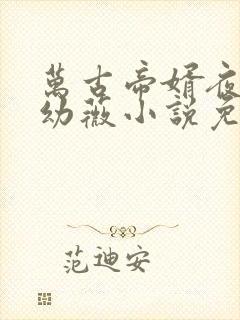 萬古帝婿夜
幼薇小說免
范迪安